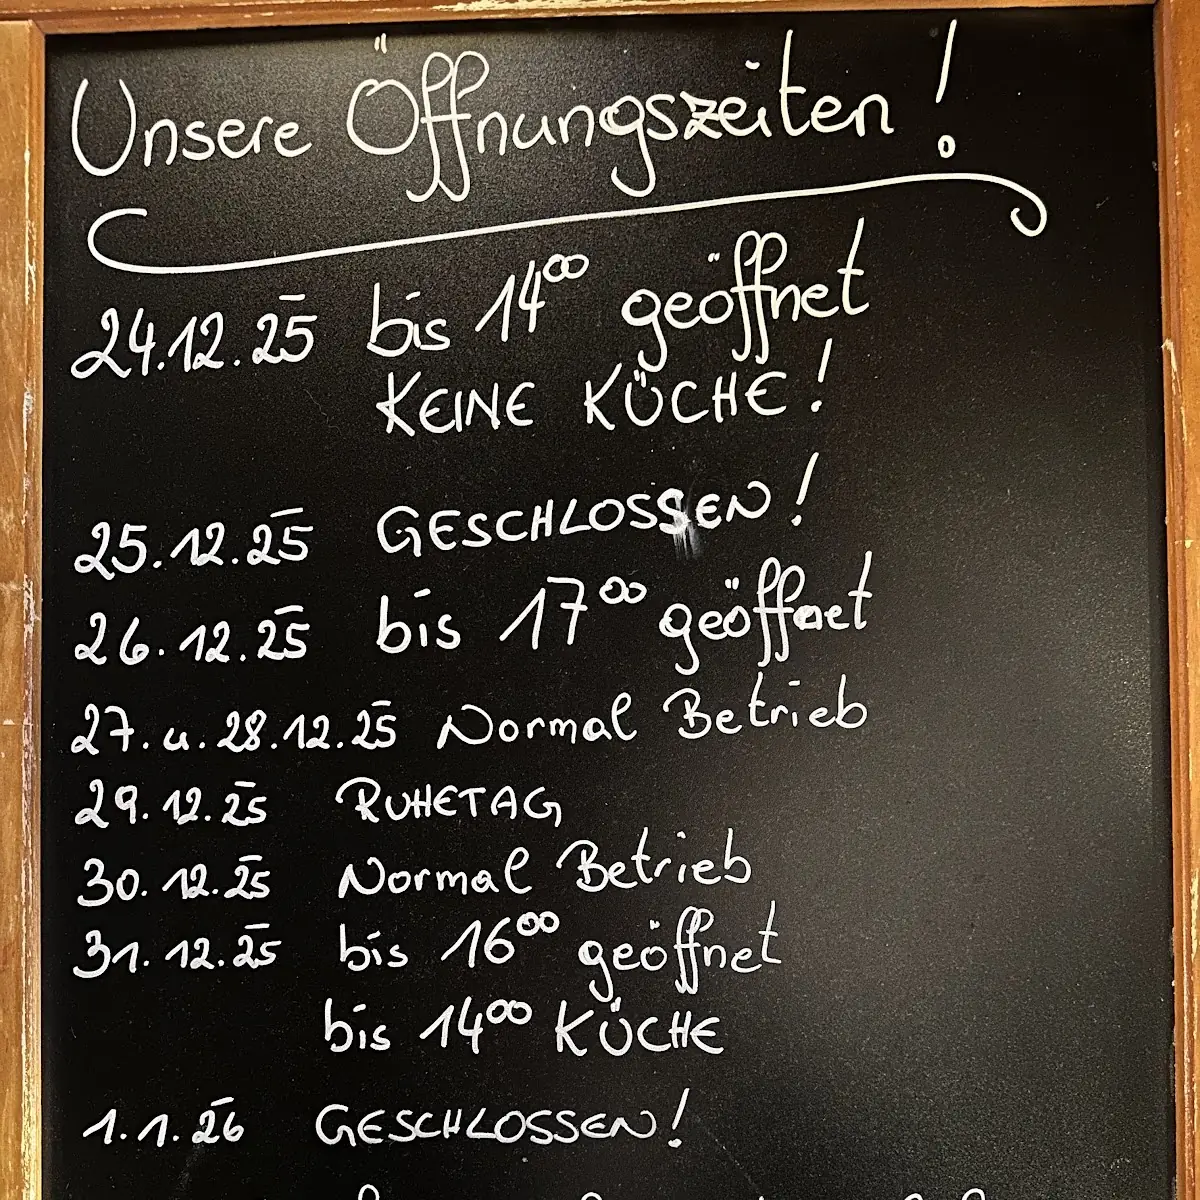 Unsere Öffnungszeiten!
24.12.25 bis 14⁰⁰ geöffnet
KEINE KÜCHE!
25.12.25 GESCHLOSSEN!
26.12.25 bis 17⁰⁰ geöffnet
27. u. 28.12.25 Normal Betrieb
29.12.25 RUHETAG
30.12.25 Normal Betrieb
31.12.25 bis 16⁰⁰ geöffnet
bis 14⁰⁰ KÜCHE
1.1.26 GESCHLOSSEN!